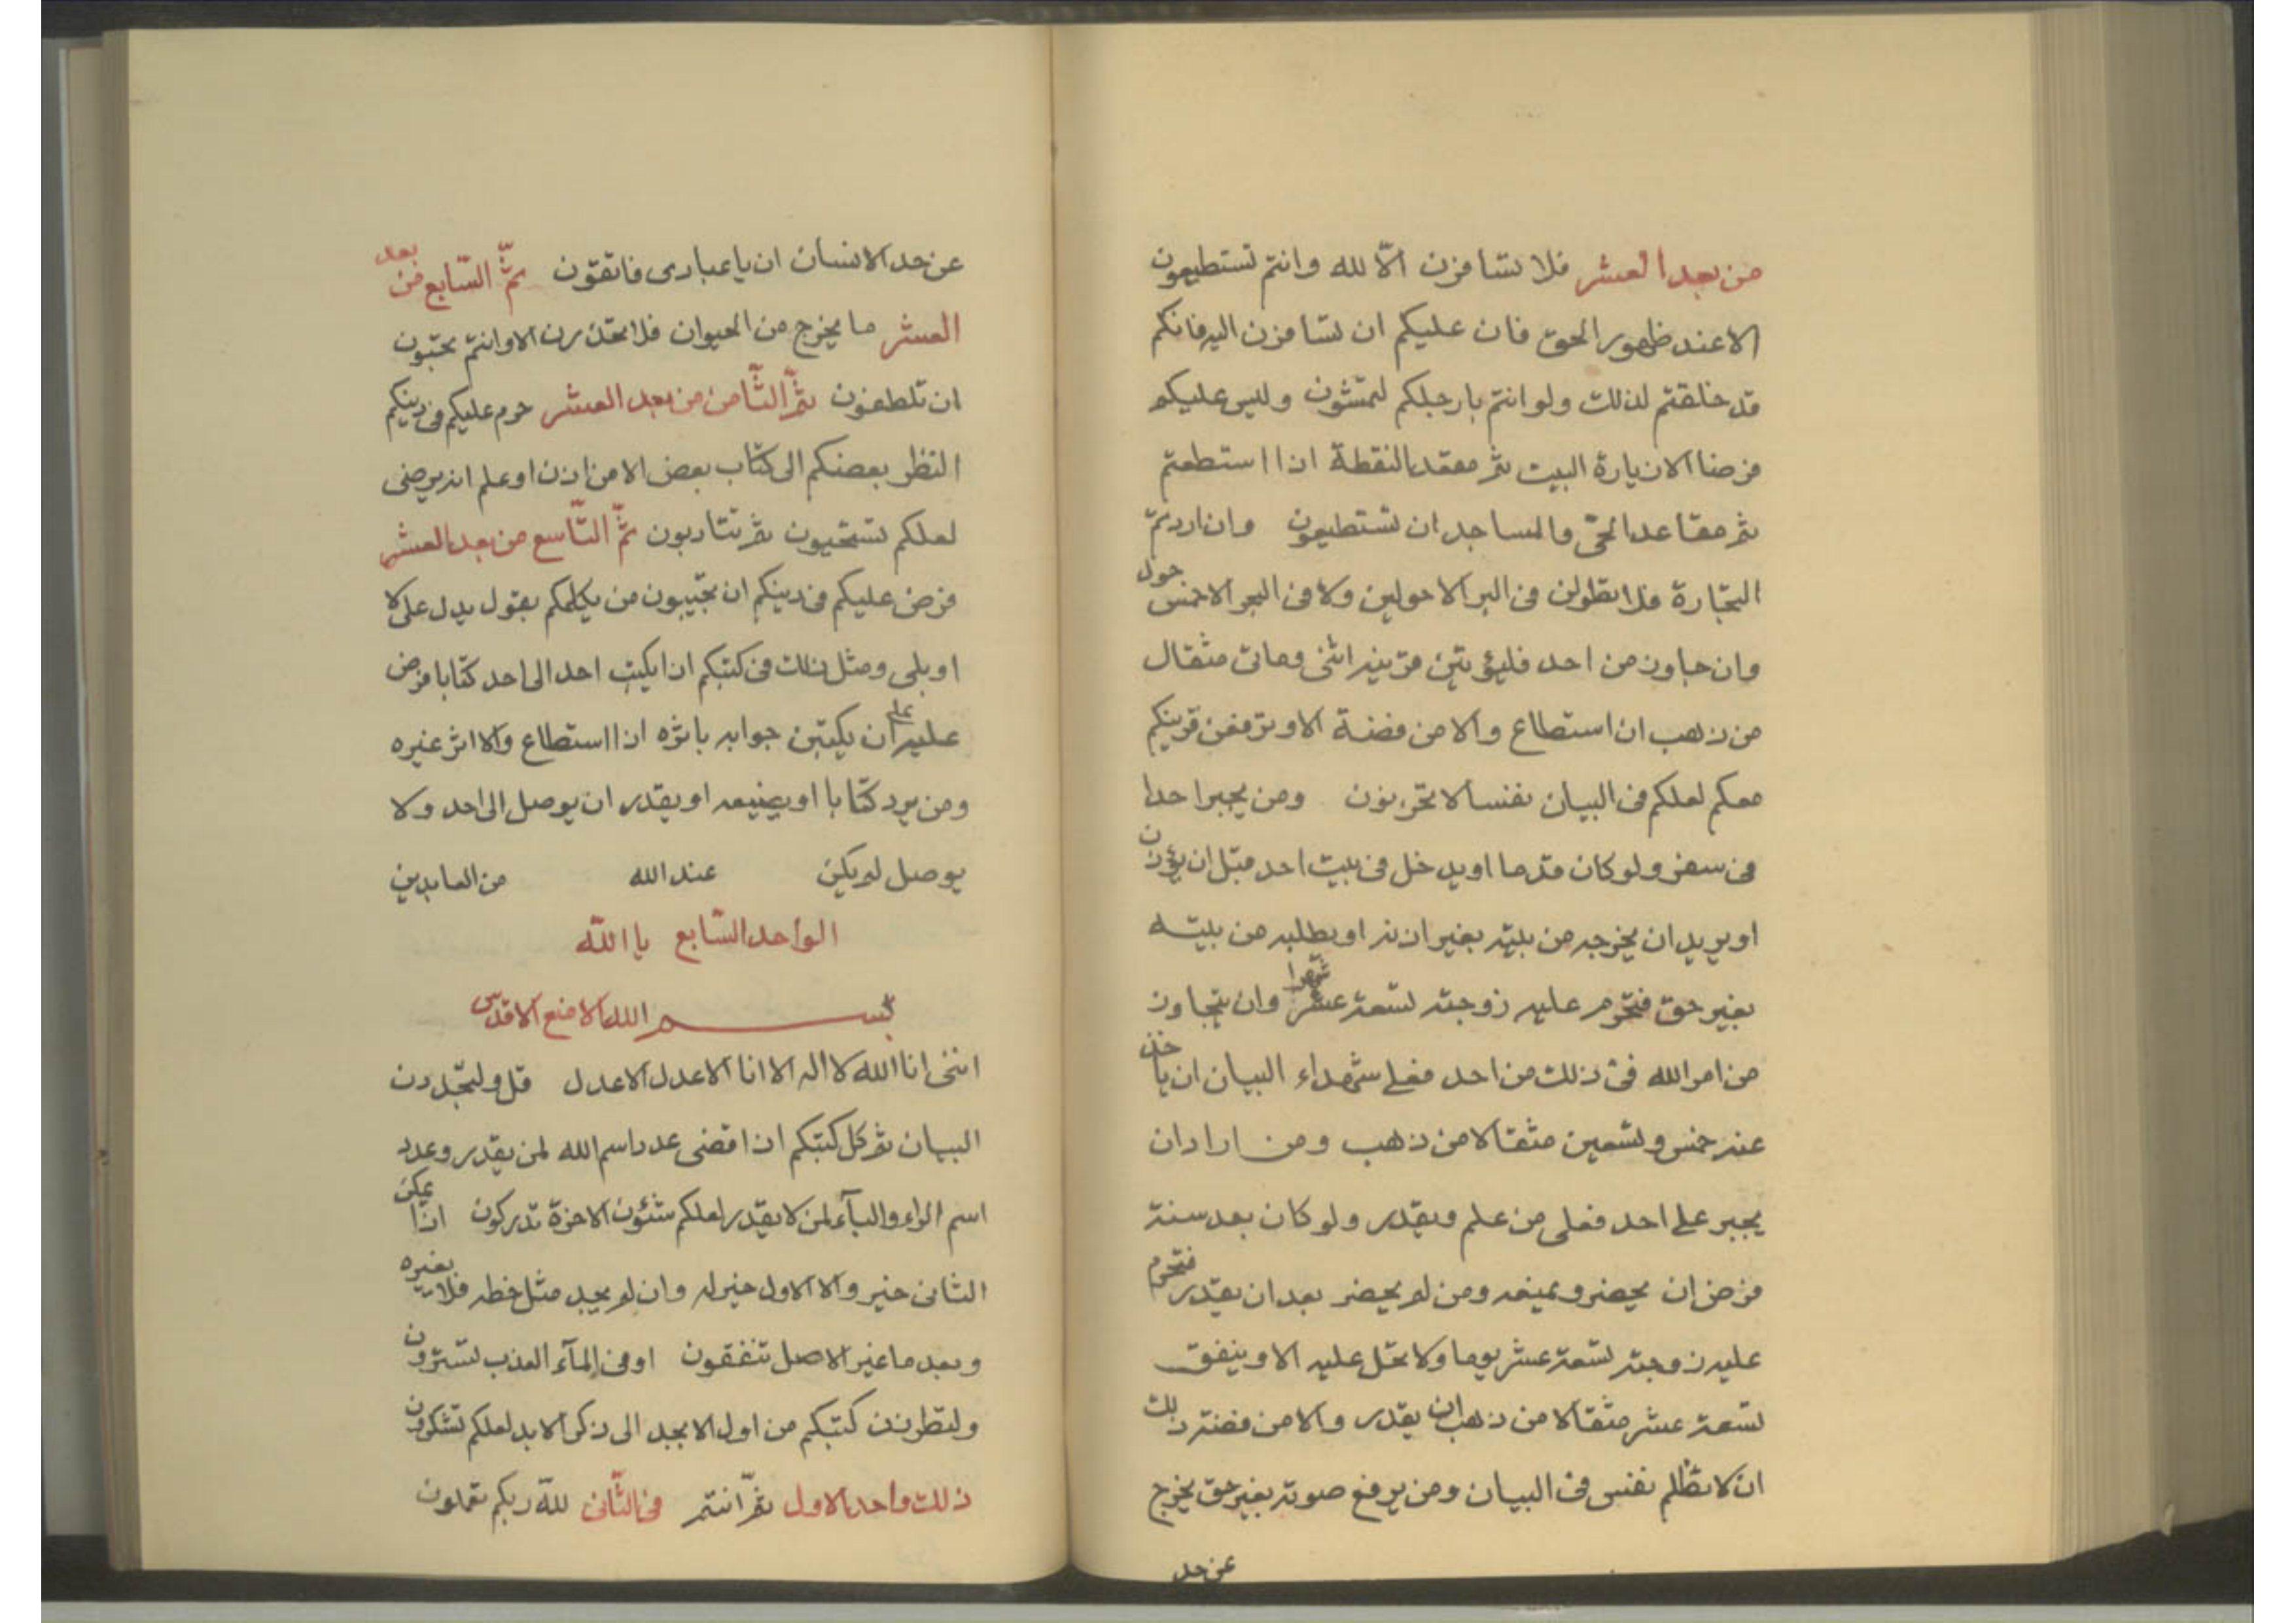 من بعد العشر فلا تسافرن الّا لله وانتم تستطيعون
الا عند ظهور الحق فان عليكم ان تسافرن اليه فانكم
قد خلقتم لذلك ولو انتم بارجلكم لتمشون وليس عليكم
فرضا الا زيارة البيت ثم مقعد النقطة اذا استطعتم
ثم مقاعد الحيّ والمساجد ان تستطيعون وان اردتم
التجارة فلا تطولن في البر الا حولين ولا في البحر الا خمس حول
وان جاوز من احد فليؤتين قرينه اثنى ومأتى مثقال
من ذهب ان استطاع والا من فضة الا وترفعن قرينكم
معكم لعلكم في البيان نفسا لا تحزنون ومن يجبر احدا
في سفر ولو كان قدما او يدخل في بيت احد قبل ان يؤذن
او يريد ان يخرجه من بيته بغير اذنه او يطلبه من بيته
بغير حق فتحرم عليه زوجته تسعة عشر شهرا وان يتجاوز
من امر الله في ذلك من احد فعلى شهداء البيان ان ياخذ
عنه خمس وتسعين مثقالا من ذهب ومن اراد ان
يجبر على احد فعلى من علم ويقدر ولو كان بعد سنة
فرض ان يحضر ويمنعه ومن لم يحضر بعد ان يقدر فتحرم
عليه زوجته تسعة عشر يوما ولا تحل عليه الا وينفق
تسعة عشر مثقالا من ذهب ان يقدر والا من فضة ذلك
ان لا تظلم نفس في البيان ومن يرفع صوته بغير حق يخرج
عن حد
عن حد الانسان ان يا عبادى فاتقون ثمّ السّابع من بعد
العشر ما يخرج من الحيوان فلا تحذرن الا وانتم تحبّون
ان تلطفون ثمّ الثّامن من بعد العشر حرم عليكم في دينكم
النظر بعضكم الى كتاب بعض الا من اذن او علم انه يرضى
لعلكم تستحيون ثم تتادبون ثمّ التّاسع من بعد العشر
فرض عليكم في دينكم ان تجيبون من يكلمكم بقول يدل على لا
او بلى ومثل ذلك في كتبكم اذا يكتب احد الى احد كتابا فرض
عليه ان يكتبن جوابه باثره اذا استطاع والا اثر غيره
ومن يرد كتابا او يضيعه او يقدر ان يوصل الى احد ولا
يوصل لم يكن عند الله من العابدين
الواحد السّابع يا الله
بسم الله الامنع الاقدس
اننى انا الله لا اله الا انا الاعدل الاعدل قل ولتجدّدن
البيان ثم كل كتبكم اذا قضى عدد اسم الله لمن يقدر وعدد
اسم الراء والبآء لمن لا يقدر لعلكم شئون الاخرة تدركون اذا يمكن
الثانى خير والا الاول خير له وان لم يجد مثل خطه فلا بغيره
وبعد ما غير الاصل تنفقون او في المآء العذب لتسترون
ولتطرزن كتبكم من اول الابجد الى ذكر الابد لعلكم تشكرون
ذلك واحد الاول ثم انتم في الثّانى للّه ربكم تعملون